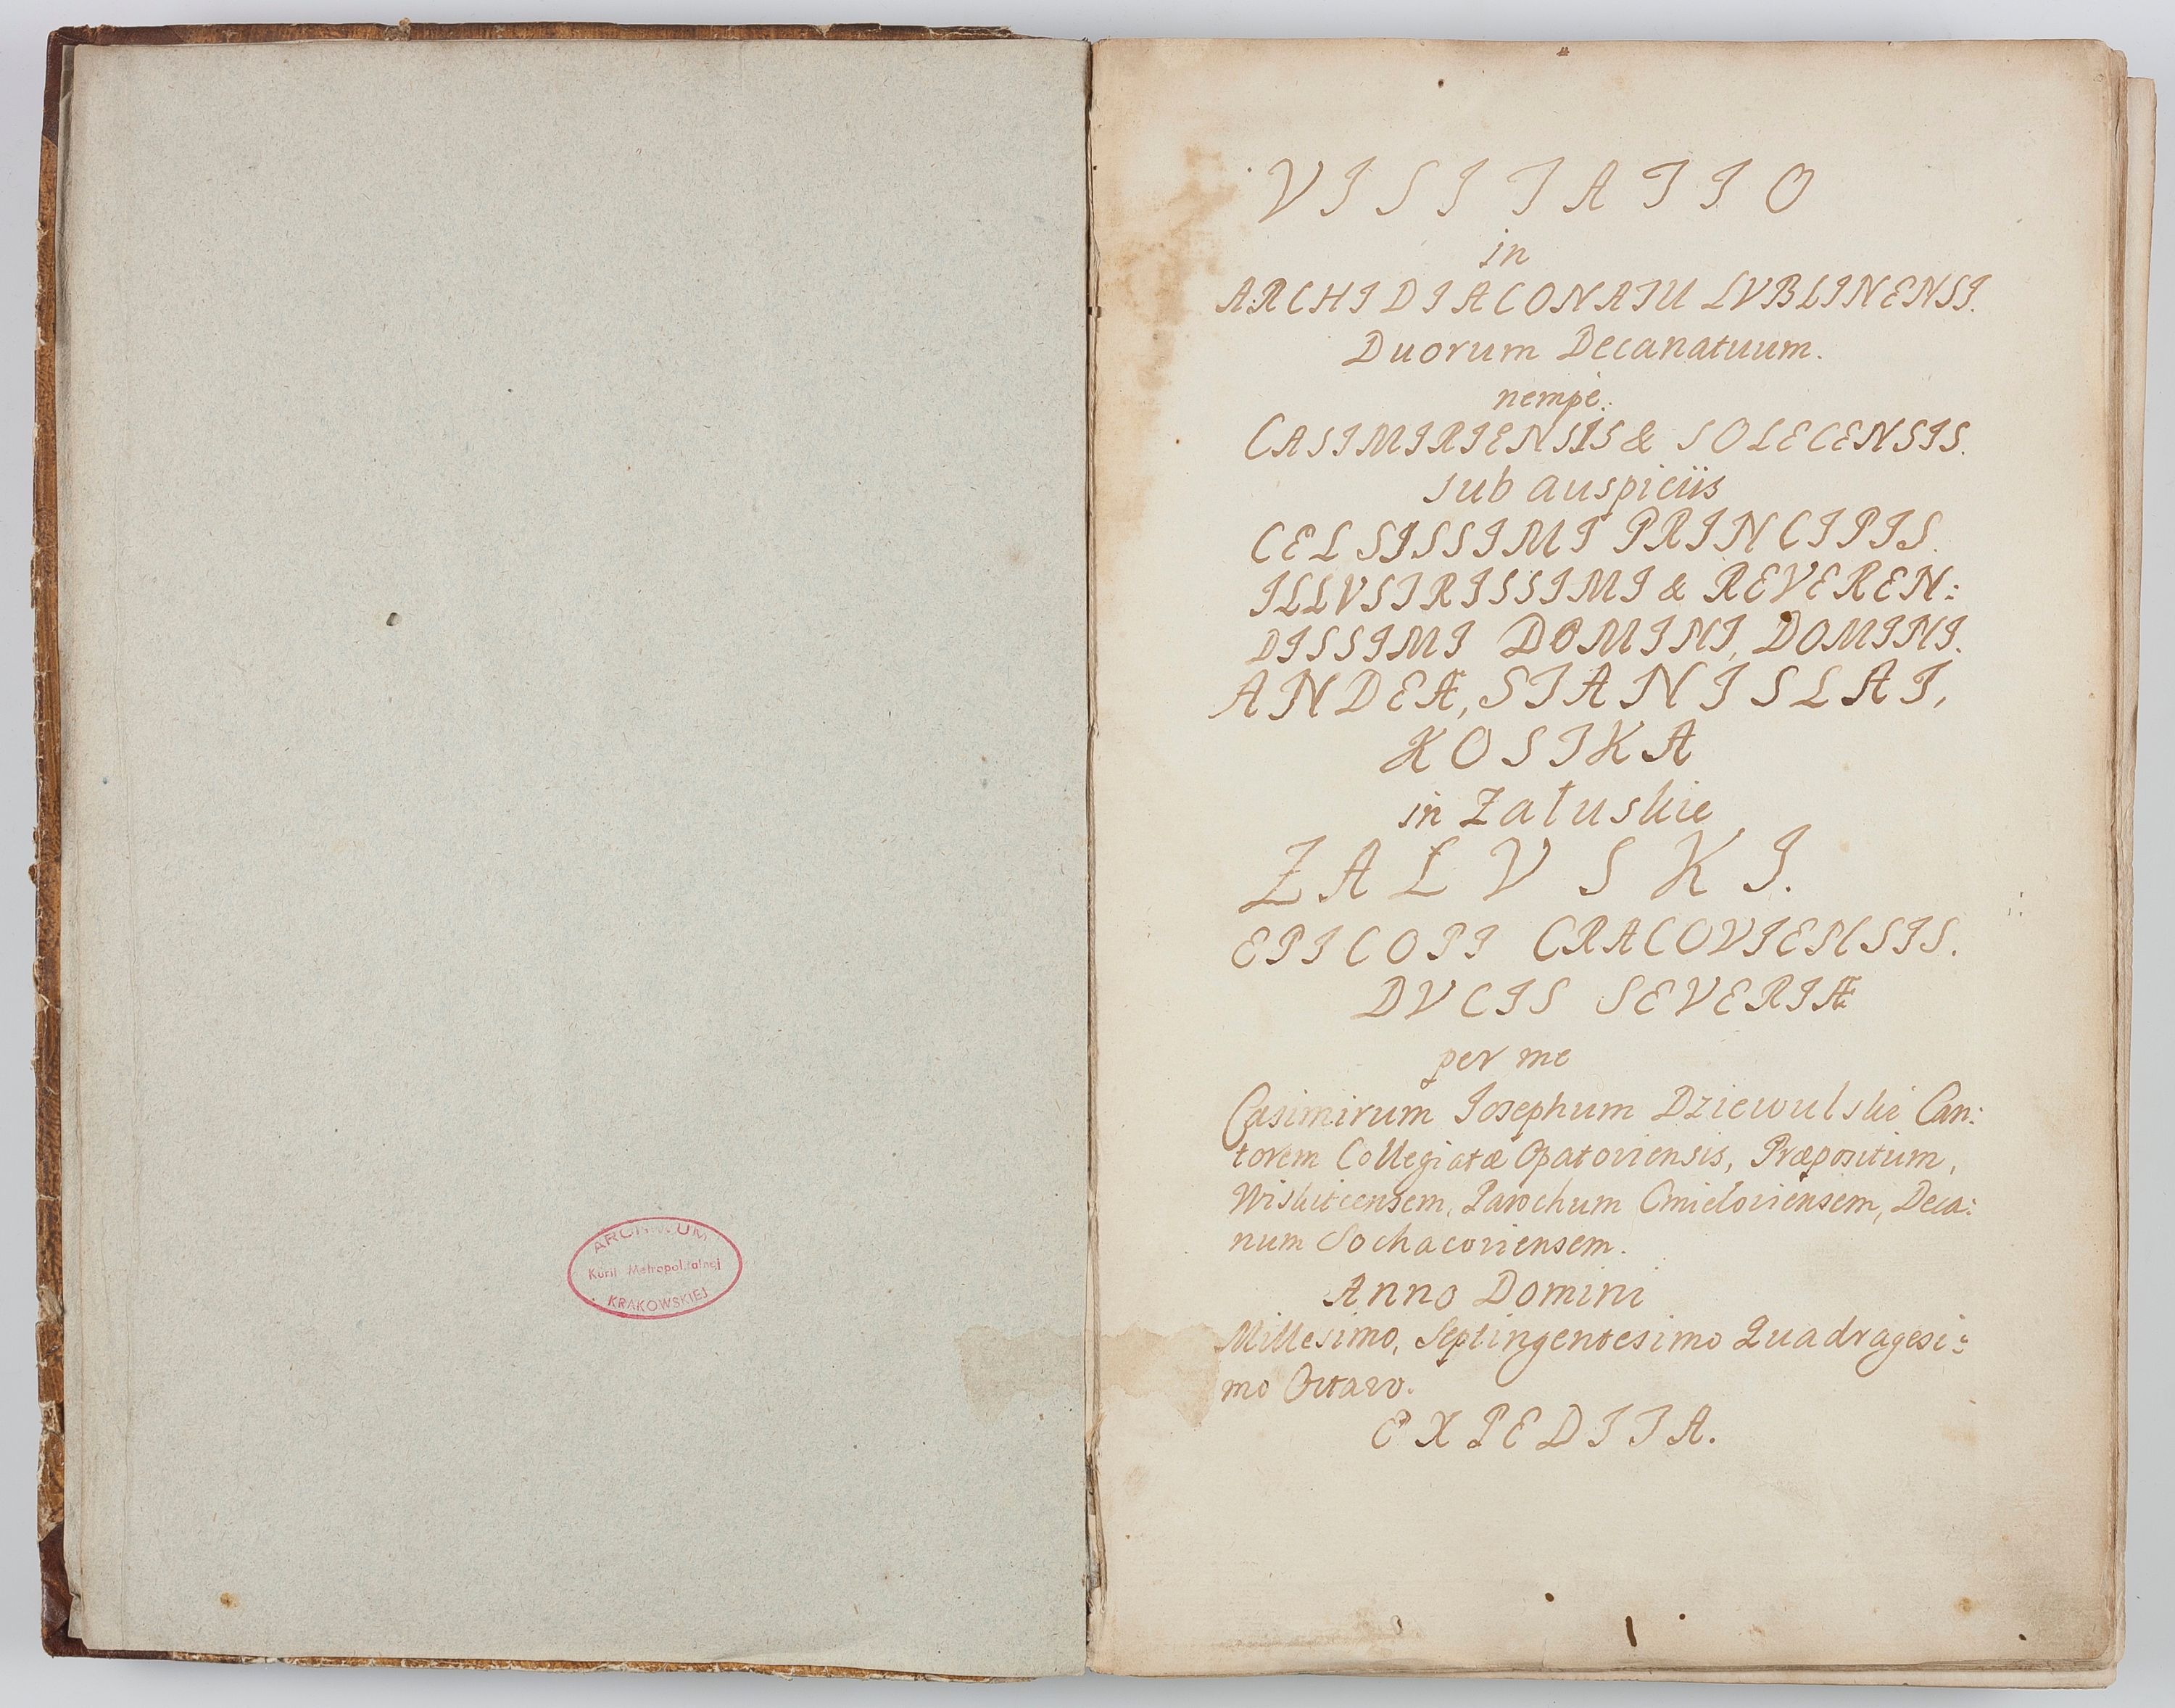 ARCHIWUM
Kurii Metropolitalnej
KRAKOWSKIEJ
VISITATIO
in
ARCHIDIACONATU LVBLINENSI.
Duorum Decanatuum.
nempè:
CASIMIRIENSIS & SOLECENSIS.
sub auspiciis
CELSISSIMI PRINCIPIS.
ILLVSTRISSIMI & REVEREN:
DISSIMI DOMINI, DOMINI.
ANDEÆ, STANISLAI,
KOSTKA
in Załuskie
ZAŁVSKI.
EPICOPI CRACOVIENSIS.
DVCIS SEVERIÆ
per me
Casimirum Iosephum Dziewulski Can:
torem Collegiatæ Opatoviensis, Præpositum,
Wislicensem, Parochum Cmieloviensem, Deca:
num Sochacoviensem.
Anno Domini
Millesimo, Septingentesimo Quadragesi:
mo Octavo.
EXPEDITA.
1